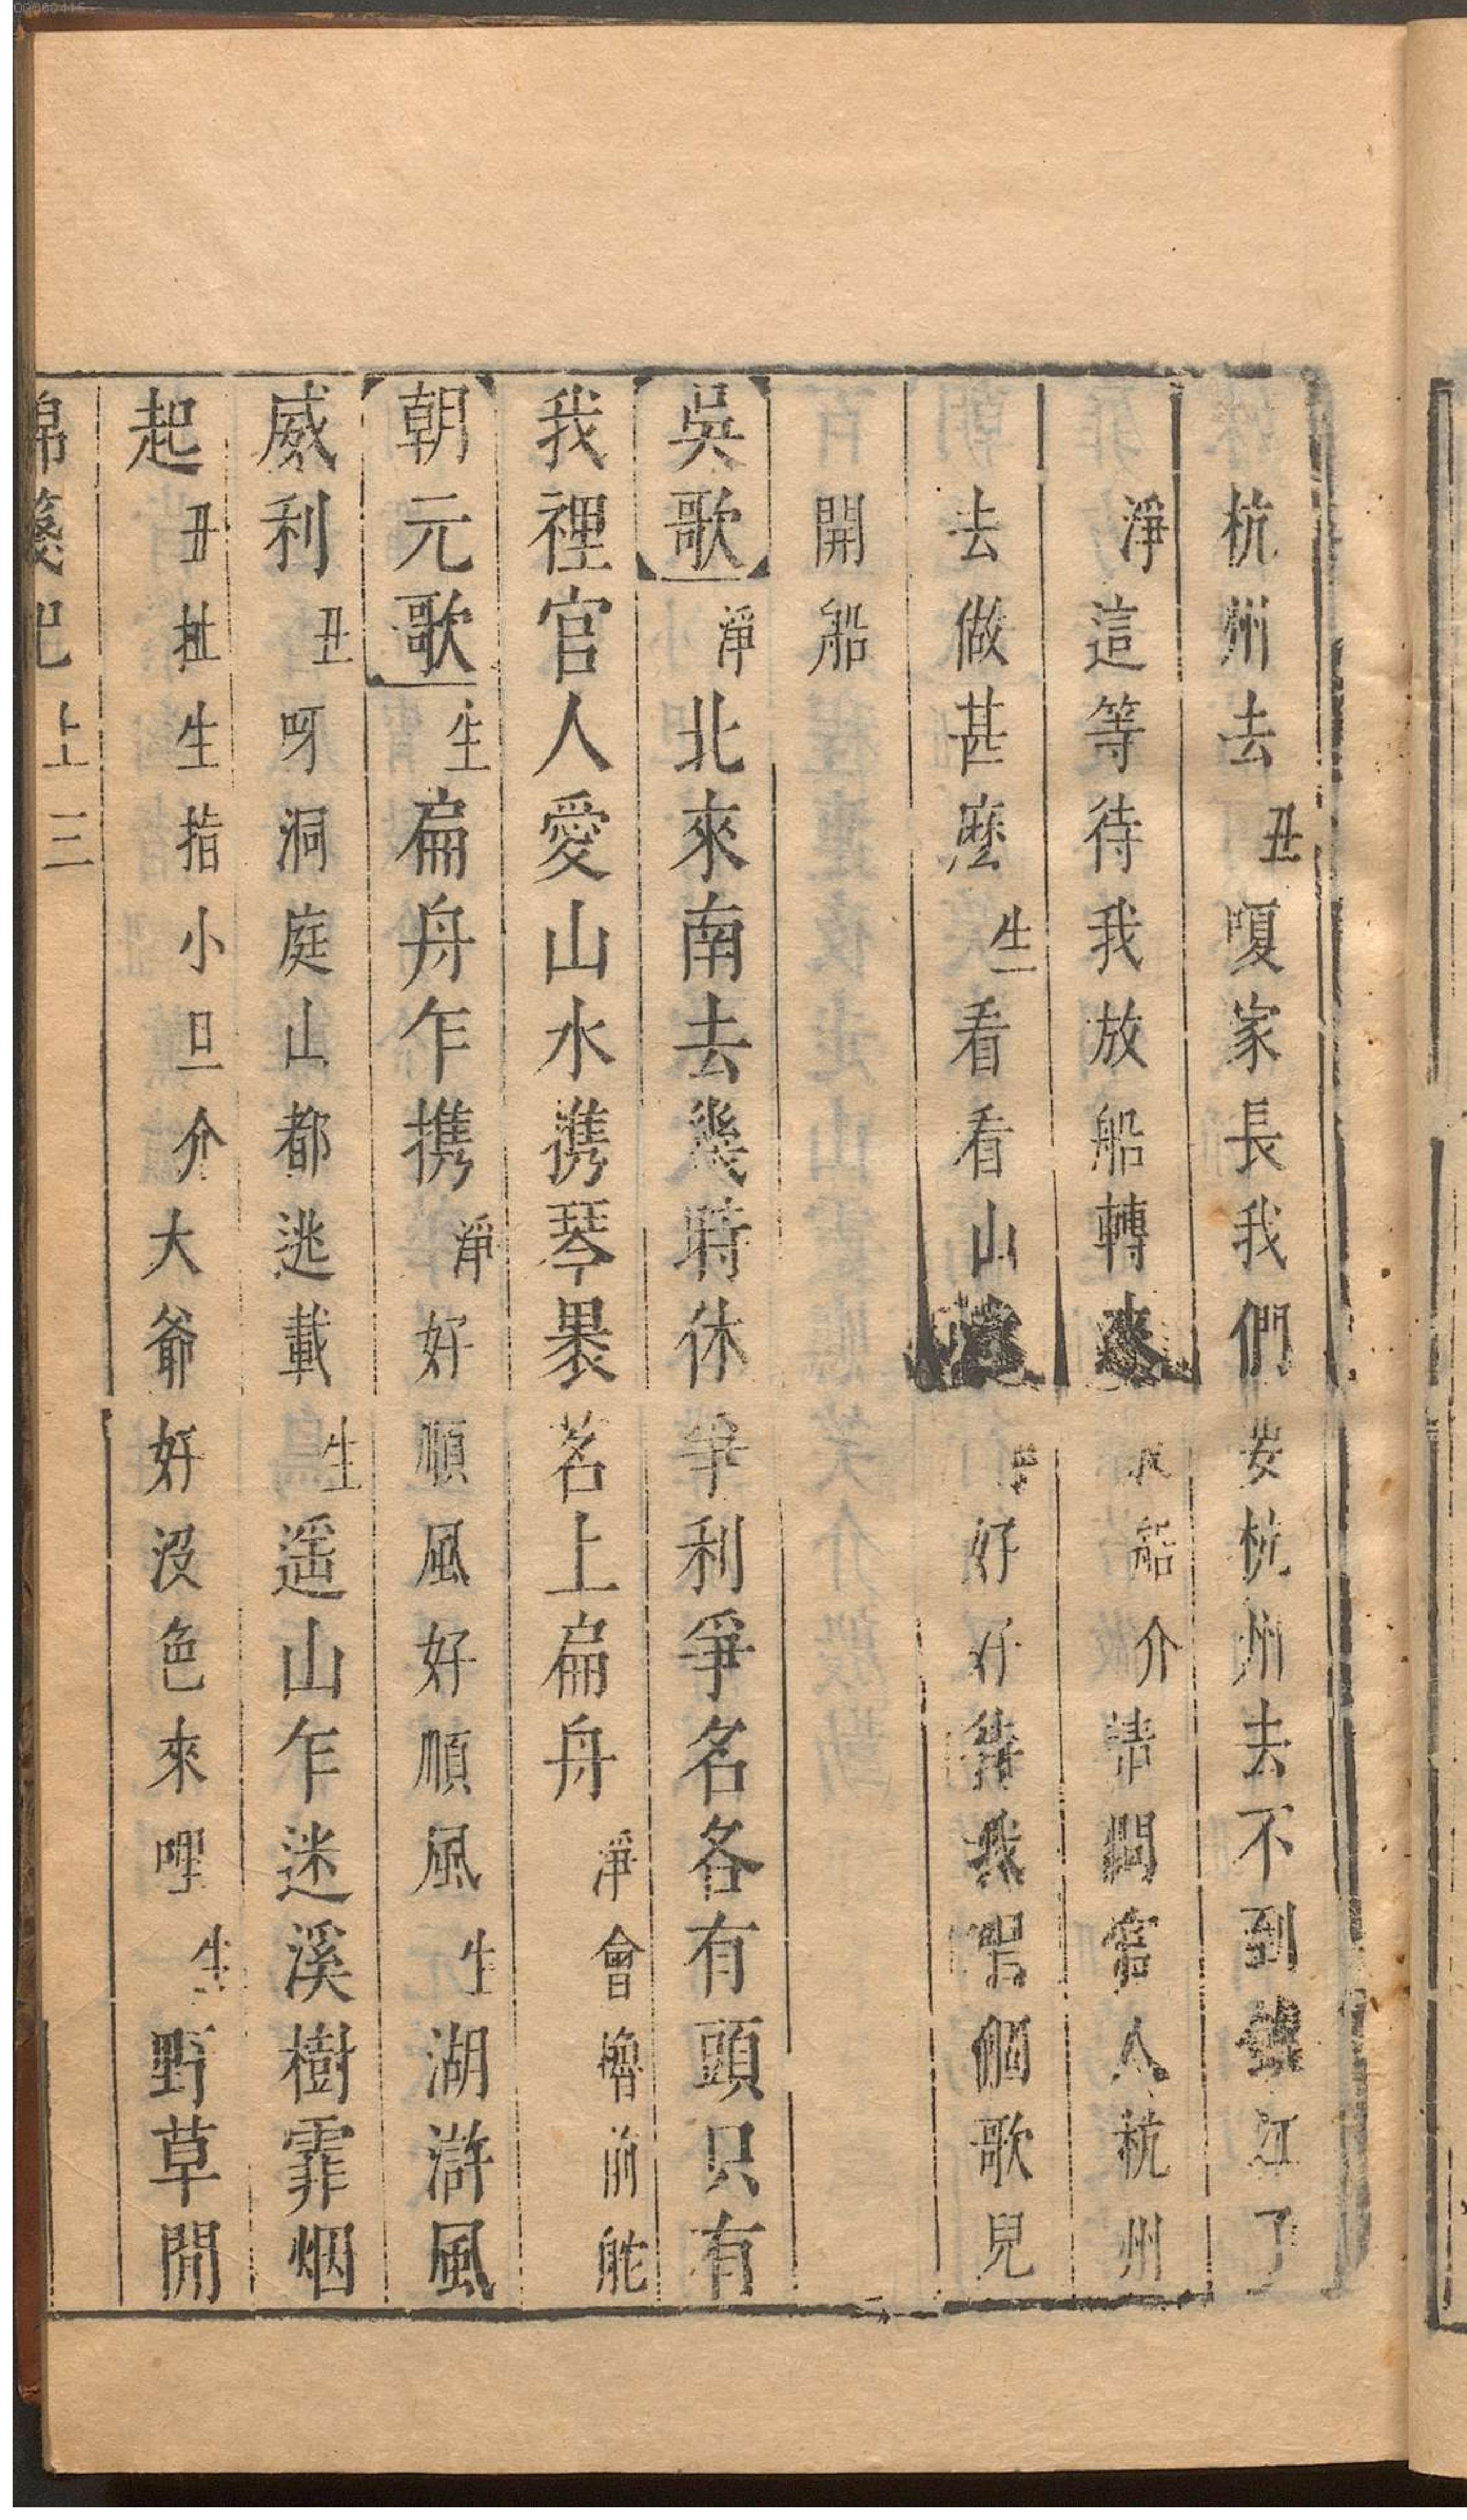 杭州去丑嗄家長我們要杭州去不到錢江了
淨這等待我放船轉來 船介請問官人杭州
去做甚麽生看看山 好好待我唱個歌兒
開船
吳歌淨北來南去幾時休爭利爭名各有頭只有
我裡官人愛山水携琴褁茗上扁舟淨會櫓前舵
朝元歌生扁舟乍携淨好順風好順風生湖滸風
威利丑呀洞庭山都逃載生遥山乍迷溪樹霏烟
起丑扯生指小旦介大爺好沒色來哩生野草閒
錦箋記上三
00080416